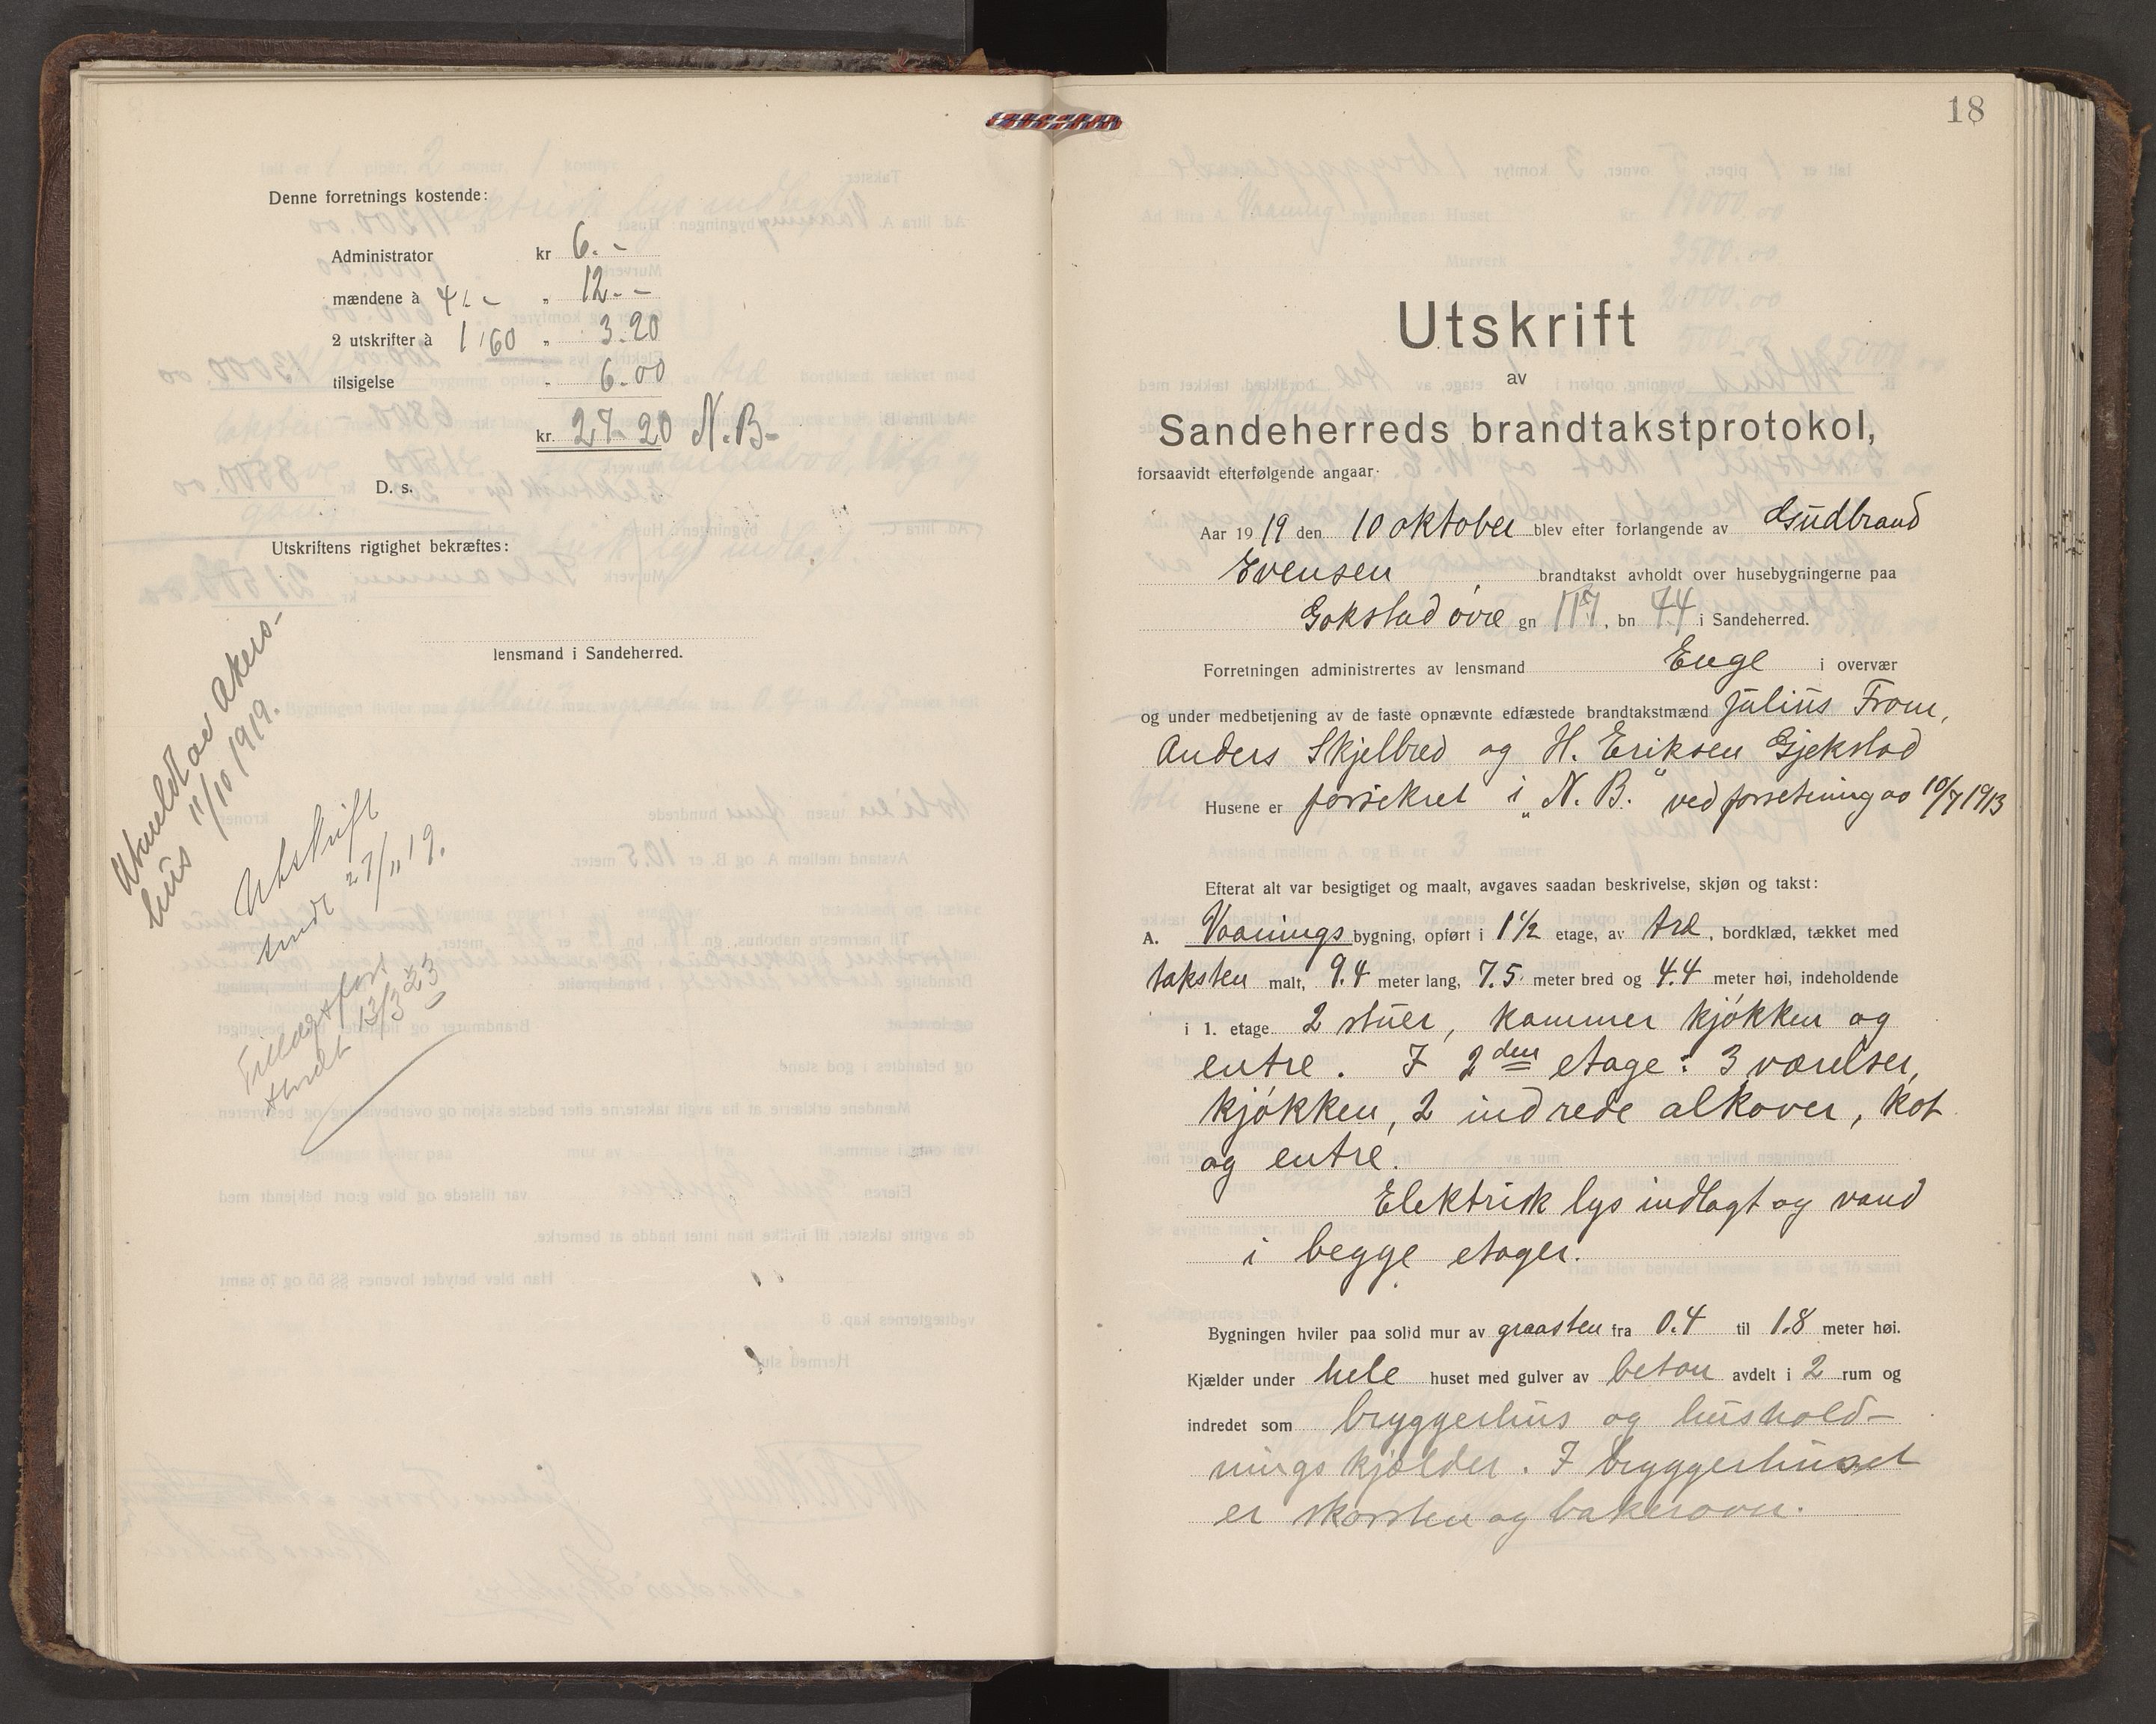 Denne forretnings kostende:
Administrator kr 6.-
mændene à 4.- „ 12.-
2 utskrifter à 1,60 „ 3.20
tilsigelse „ 6.00
kr. 27.20 N.B-
D. s.
Utskriftens rigtighet bekræftes:
lensmand i Sandeherred.
Utmeldt av Akers-
hus 11/10 1919.
Utskrift
sendt 27/11 19.
Tillægsfort
sendt 13/3 23
18
Utskrift
av
Sandeherreds brandtakstprotokol,
forsaavidt efterfølgende angaar:
Aar 1919 den 10 oktober blev efter forlangende av Gudbrand
Evensen brandtakst avholdt over husebygningerne paa
Gokstad øvre gn 117, bn 44 i Sandeherred.
Forretningen administrertes av lensmand Enge i overvær
og under medbetjening av de faste opnævnte edfæstede brandtakstmænd Julius From,
Anders Skjelbred og H. Eriksen Gjekstad
Husene er forsikret i „N. B." ved forretning av 10/7 1913
Efterat alt var besigtiget og maalt, avgaves saadan beskrivelse, skjøn og takst:
A. Vaaningsbygning, opført i 1 1/2 etage, av træ, bordklæd, tækket med
taksten malt, 9.4 meter lang, 7.5 meter bred og 4.4 meter høi, indeholdende
i 1. etage 2 stuer, kammer kjøkken og
entre. I 2den etage: 3 værelser,
kjøkken, 2 indrede alkover, kot
og entre.
Elektrisk lys indlagt og vand
i begge etager.
Bygningen hviler paa solid mur av graasten fra 0.4 til 1.8 meter høi.
Kjælder under hele huset med gulver av beton avdelt i 2 rum og
indredet som bryggerhus og hushold-
nings kjælder. I bryggerhuset
er skorsten og bakerovn.